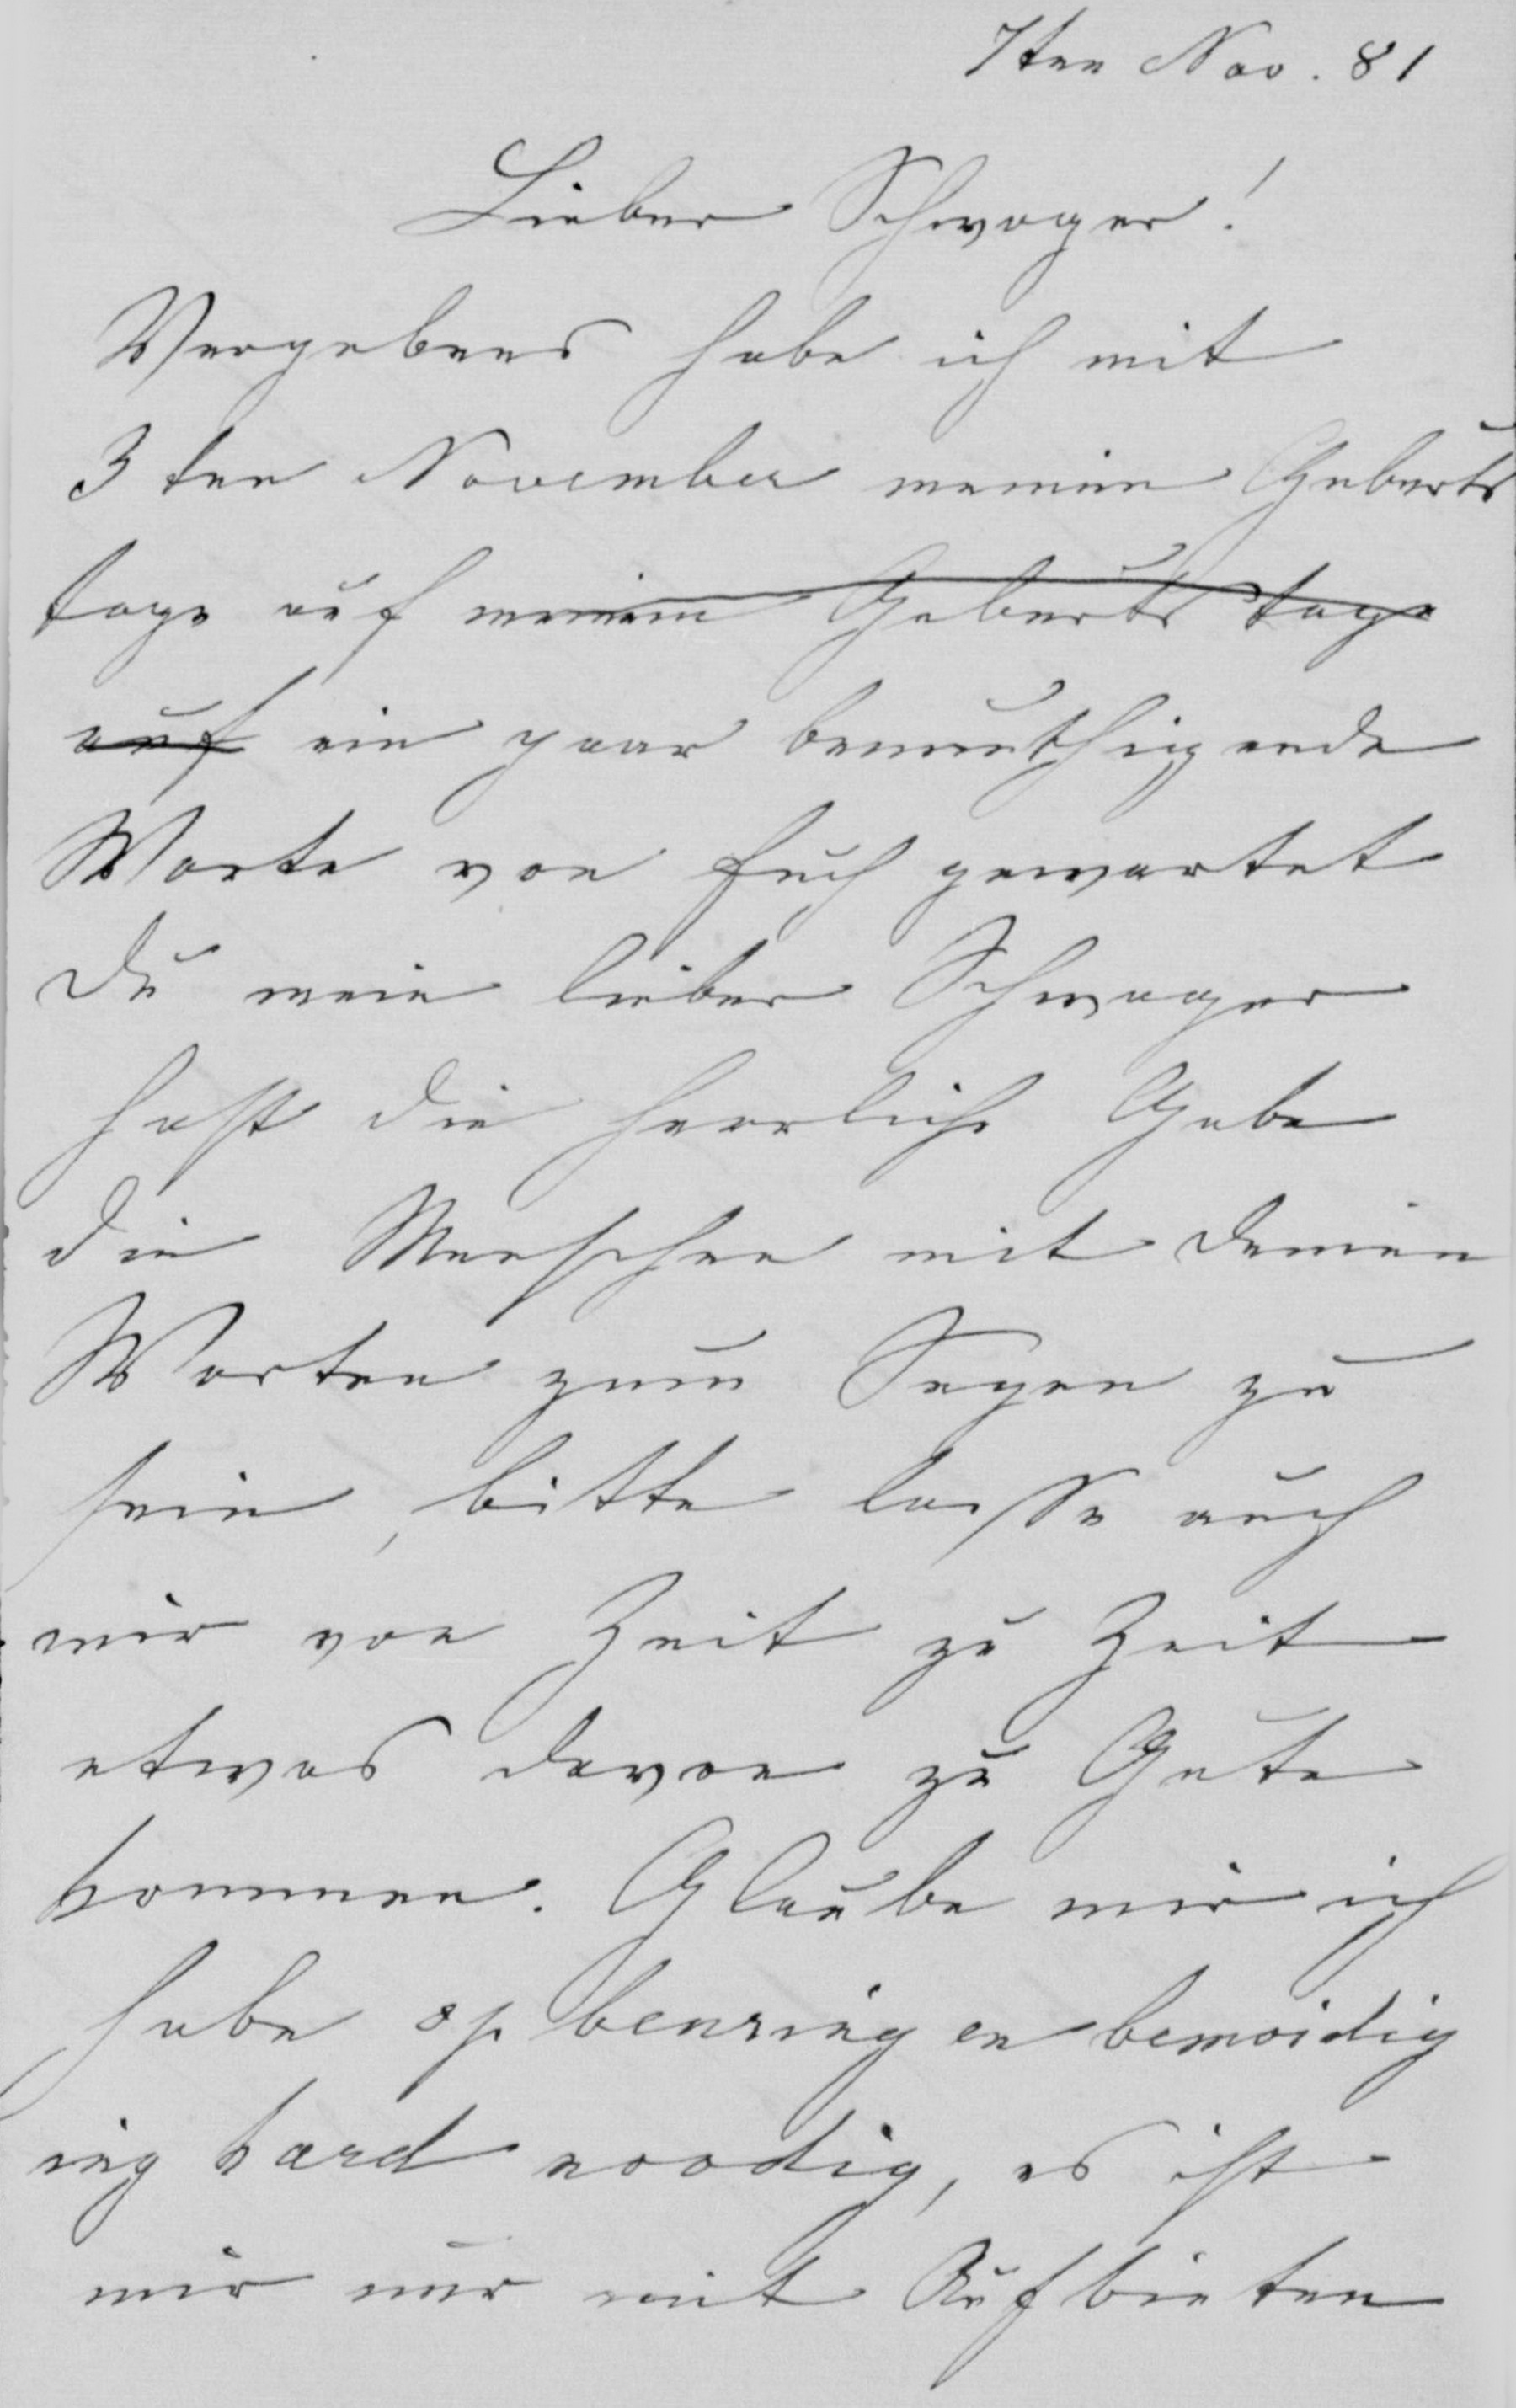 7ten Nov. 81
Lieber Schwager!
Vergebens habe ich mit
3ten November meinem Geburts
tage auf meinem Geburtstage
auf ein paar bemuthigende
Worte von Euch gewartet
Du mein lieber Schwager
hast die herrliche Gabe
die Menschen mit deinen
Worten zum Segen zu
sein, bitte lasse auch
mir von Zeit zu Zeit
etwas davon zu Gute
kommen. Glaube mir ich
habe opbeuring en bemoidig
ing hard noodig, es ist
mir nur mit Aufbieten